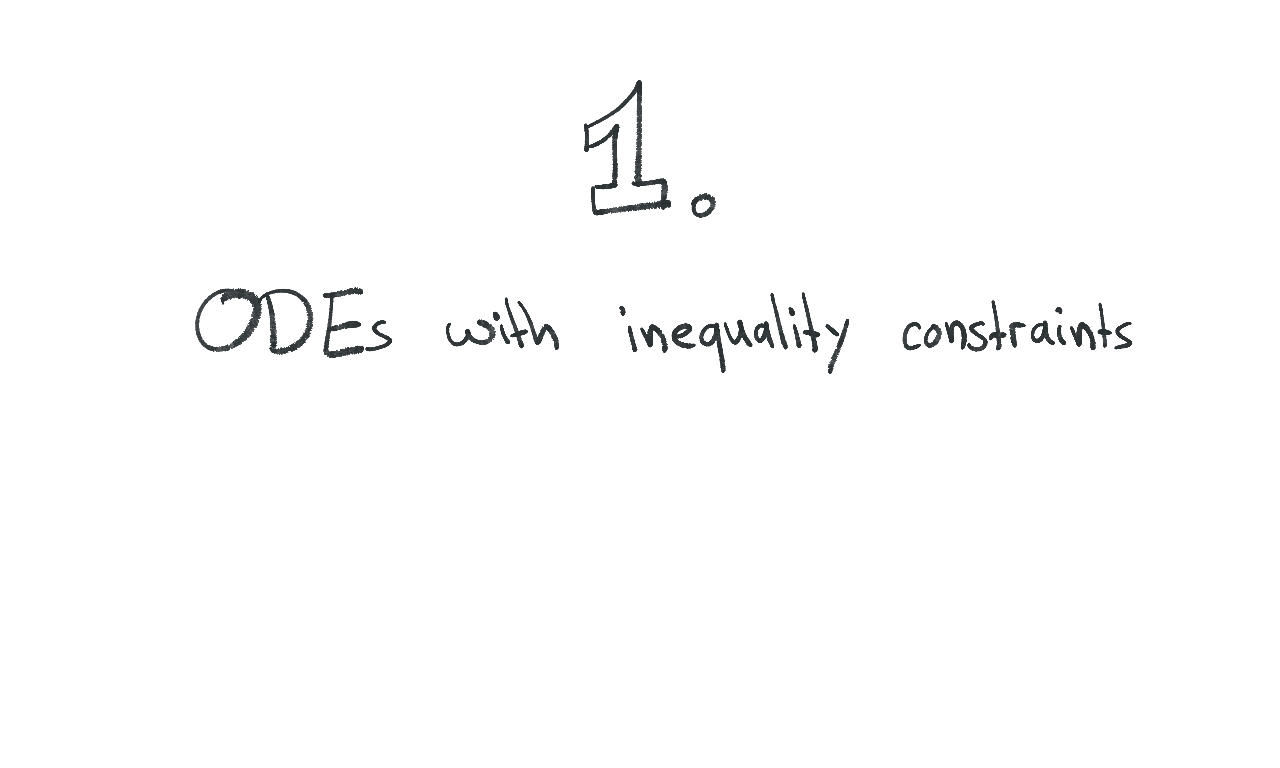 1.
ODEs with inequality constraints